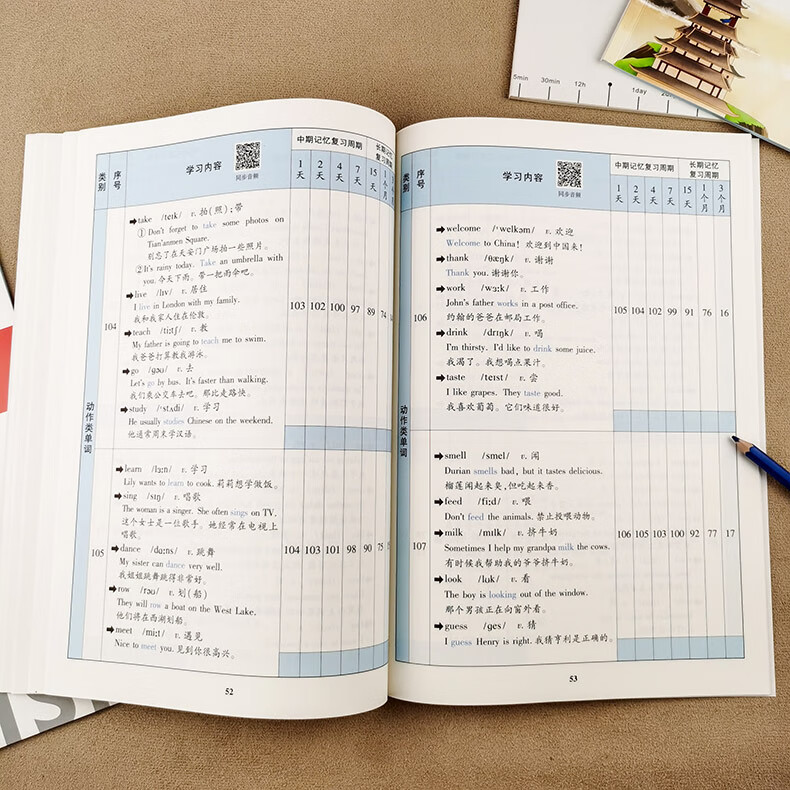 5min 30min 12h 1day
类别 序号 学习内容 同步音频 中期记忆复习周期 长期记忆复习周期
1天 2天 4天 7天 15天 1个月
动作类单词
104
➡take /teɪk/ v. 拍(照);带
① Don't forget to take some photos on
Tian'anmen Square.
别忘了在天安门广场拍一些照片。
②It's rainy today. Take an umbrella with
you. 今天下雨。带一把雨伞吧。
➡live /lɪv/ v. 居住
I live in London with my family.
我和我家人住在伦敦。
➡teach /tiːtʃ/ v. 教
My father is going to teach me to swim.
我爸爸打算教我游泳。
➡go /ɡəʊ/ v. 去
Let's go by bus. It's faster than walking.
我们乘公交车去吧。那比走路快。
➡study /ˈstʌdi/ v. 学习
He usually studies Chinese on the weekend.
他通常周末学汉语。
103 102 100 97 89 74
105
➡learn /lɜːn/ v. 学习
Lily wants to learn to cook. 莉莉想学做饭。
➡sing /sɪŋ/ v. 唱歌
The woman is a singer. She often sings on TV.
这个女士是一位歌手。她经常在电视上
唱歌。
➡dance /dɑːns/ v. 跳舞
My sister can dance very well.
我姐姐跳舞跳得非常好。
➡row /rəʊ/ v. 划(船)
They will row a boat on the West Lake.
他们将在西湖划船。
➡meet /miːt/ v. 遇见
Nice to meet you. 见到你很高兴。
104 103 101 98 90 75
52
类别 序号 学习内容 同步音频 中期记忆复习周期 长期记忆复习周期
1天 2天 4天 7天 15天 1个月 3个月
动作类单词
106
➡welcome /ˈwelkəm/ v. 欢迎
Welcome to China! 欢迎到中国来!
➡thank /θæŋk/ v. 谢谢
Thank you. 谢谢你。
➡work /wɜːk/ v. 工作
John's father works in a post office.
约翰的爸爸在邮局工作。
➡drink /drɪŋk/ v. 喝
I'm thirsty. I'd like to drink some juice.
我渴了。我想喝点果汁。
➡taste /teɪst/ v. 尝
I like grapes. They taste good.
我喜欢葡萄。它们味道很好。
105 104 102 99 91 76 16
107
➡smell /smel/ v. 闻
Durian smells bad, but it tastes delicious.
榴莲闻起来臭,但吃起来香。
➡feed /fiːd/ v. 喂
Don't feed the animals. 禁止投喂动物。
➡milk /mɪlk/ v. 挤牛奶
Sometimes I help my grandpa milk the cows.
有时候我帮助我的爷爷挤牛奶。
➡look /lʊk/ v. 看
The boy is looking out of the window.
那个男孩正在向窗外看。
➡guess /ɡes/ v. 猜
I guess Henry is right. 我猜亨利是正确的。
106 105 103 100 92 77 17
53